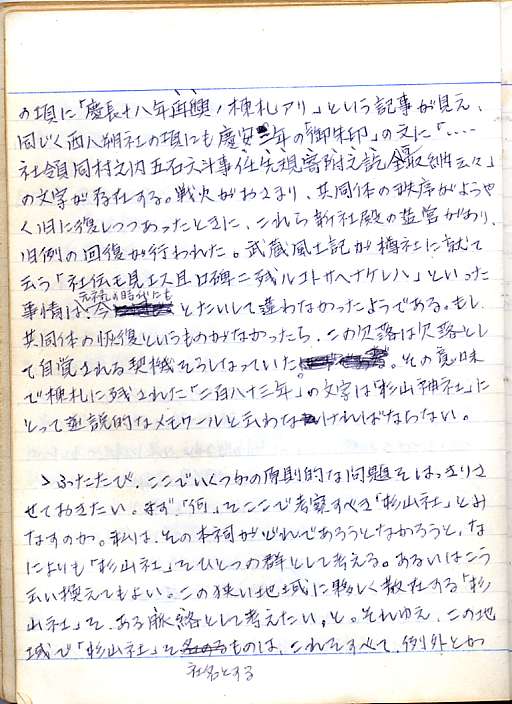 の項に「慶長十八年再興ノ棟札アリ」という記事が見え、
同じく西八朔社の項にも慶安二年の「御朱印」の文に「‥‥
社領同村之内五石六斗事任先規寄附之訖 全収納云々」
の文字が存在する。戦火がおさまり、共同体の秩序がようや
く旧に復しつつあったときに、これら新社殿の造営があり、
旧例の回復が行われた。武蔵風土記が樽社に就て
云う「社伝モ見エス且口碑ニ残ルコトサヘナケレハ」といった
事情は、元禄の時代にも とたいして違わなかったようである。もし
共同体の恢復というものがなかったら、この欠落は欠落とし
て自覚される契機をうしなっていた。その意味
で棟札に残された「二百八十三年」の文字は「杉山神社」に
とって逆説的なメモワールと云わなければならない。
ふたたび、ここでいくつかの原則的な問題をはっきりさ
せておきたい。まず、「何」をここで考察すべき「杉山社」とみ
なすのか。私は、その本祠がどれであろうとなかろうと、な
によりも「杉山社」をひとつの群として考える。あるいはこう
云い換えてもよい。この狭い地域に夥しく散在する「杉
山社」を、ある脈絡として考えたい、と。それゆえ、この地
域で「杉山社」を社名とするものは、これをすべて、例外とか